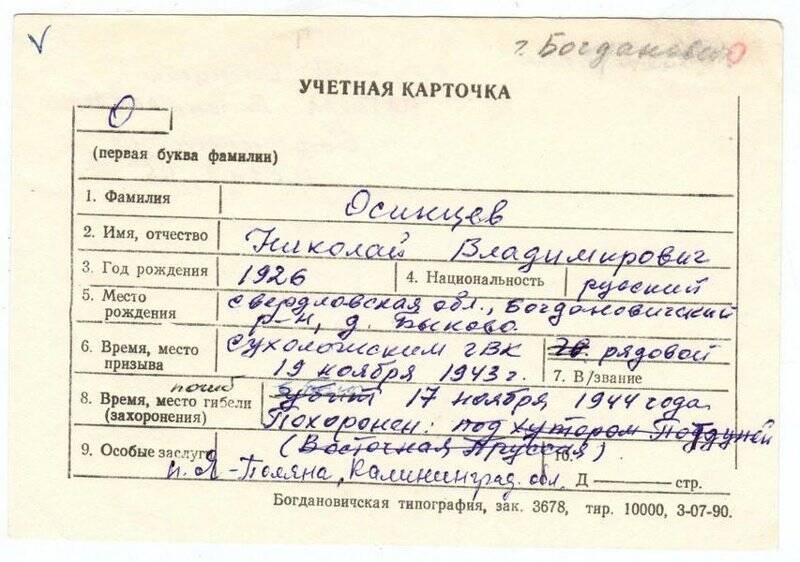 г. Богданович О
УЧЕТНАЯ КАРТОЧКА
О
(первая буква фамилии)
1. Фамилия Осинцев
2. Имя, отчество Николай Владимирович
3. Год рождения 1926 4. Национальность русский
5. Место рождения Свердловская обл., Богдановичский
р-н, д. Быково
6. Время, место призыва Сухоложским ГВК рядовой
19 ноября 1943 г. 7. В/звание
погиб
8. Время, место гибели (захоронения) убит 17 ноября 1944 года
Похоронен: под хутором
9. Особые заслуги (Восточная Пруссия) 10.
п. Я-Поляна, Калининград. обл. Д стр.
Богдановичская типография, зак. 3678, тир. 10000, 3-07-90.